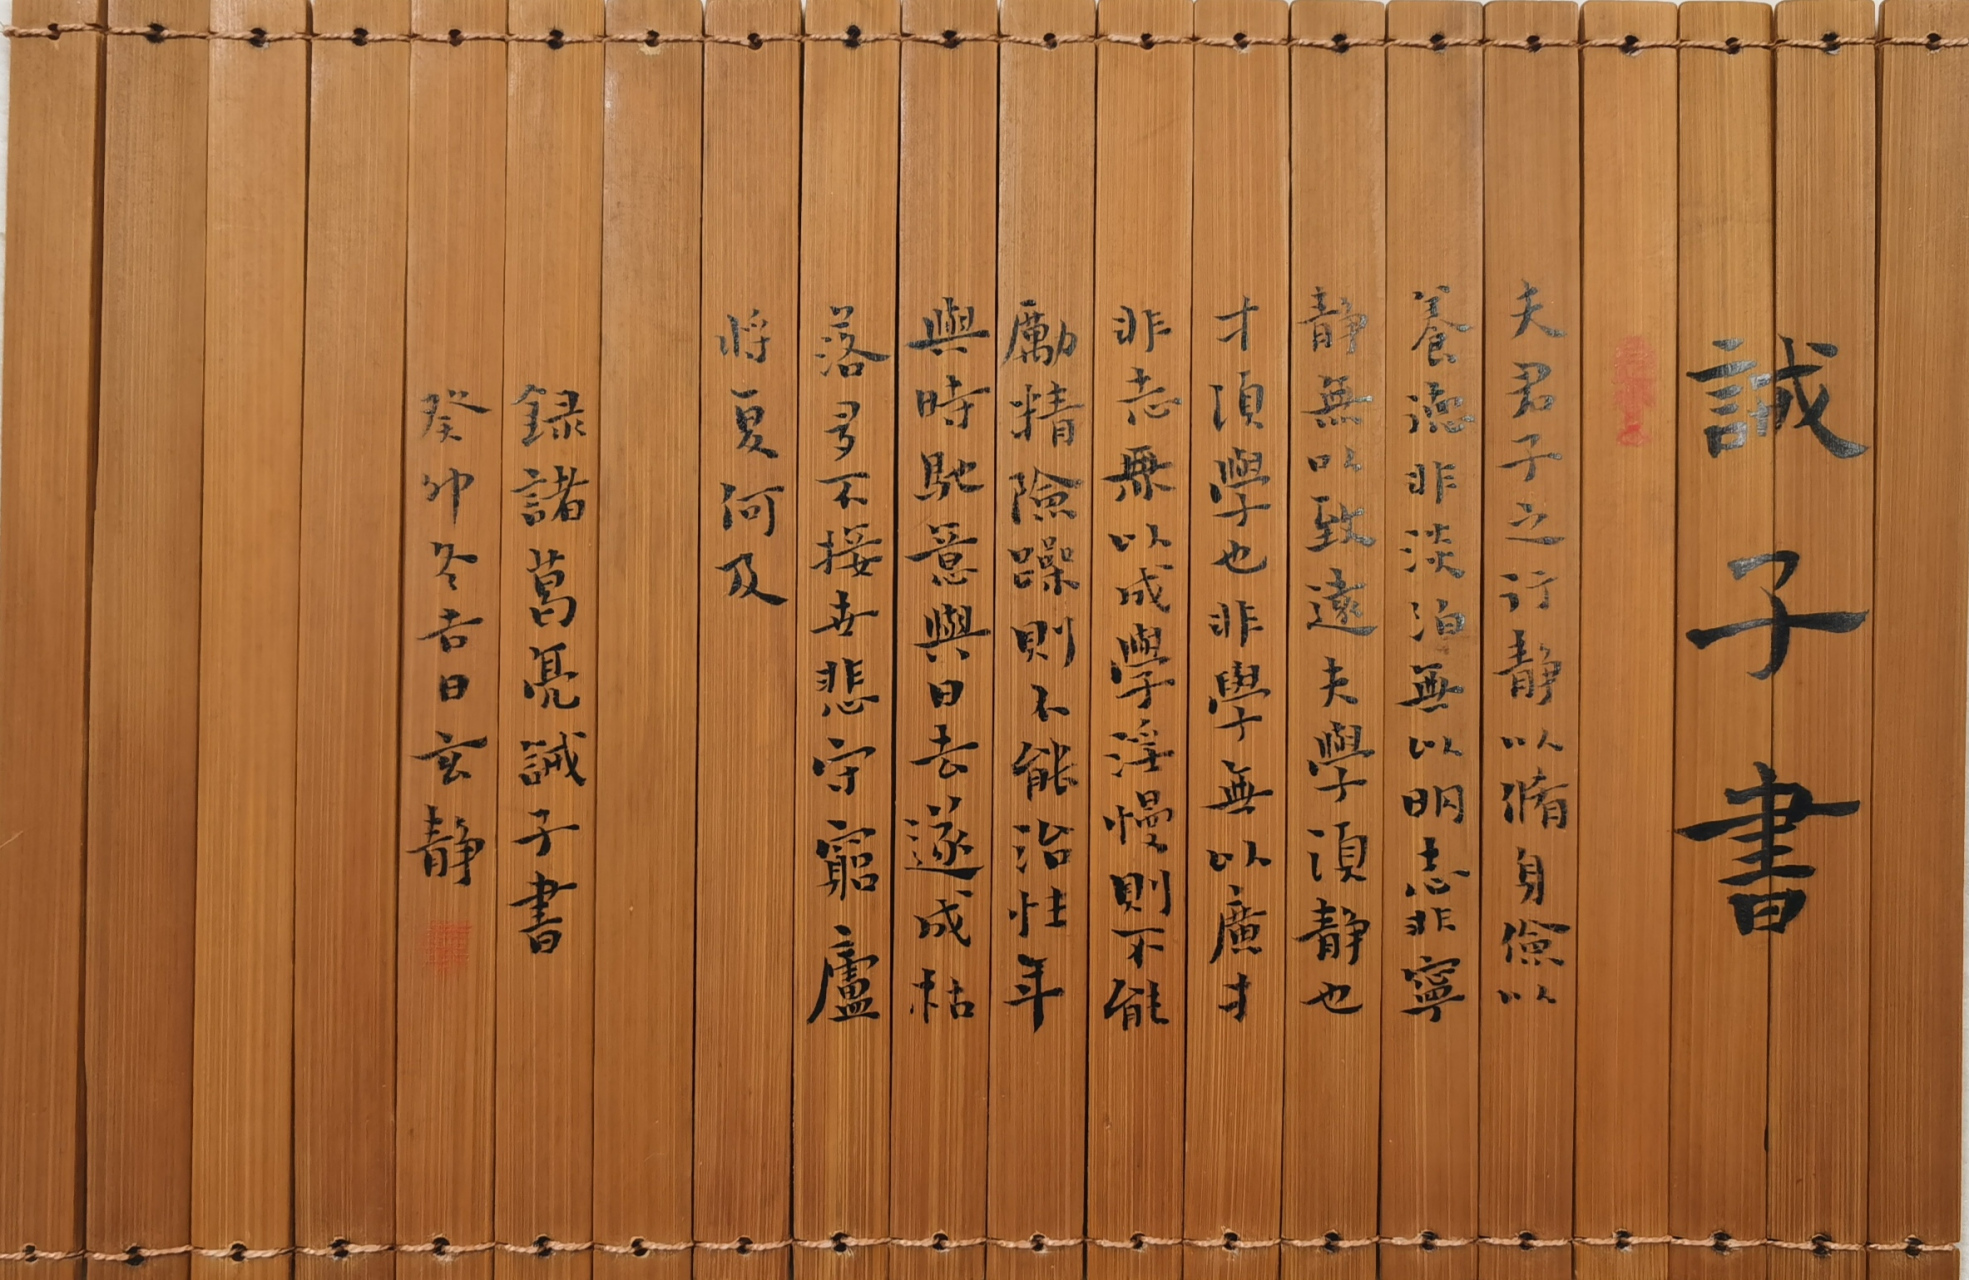 誡子書
夫君子之行靜以脩身儉以
養德非淡泊無以明志非寧
靜無以致遠夫學須靜也
才須學也非學無以廣才
非志無以成學淫慢則不能
勵精險躁則不能治性年
與時馳意與日去遂成枯
落多不接世悲守窮廬
將复何及
録諸葛亮誡子書
癸卯冬吉日玄靜